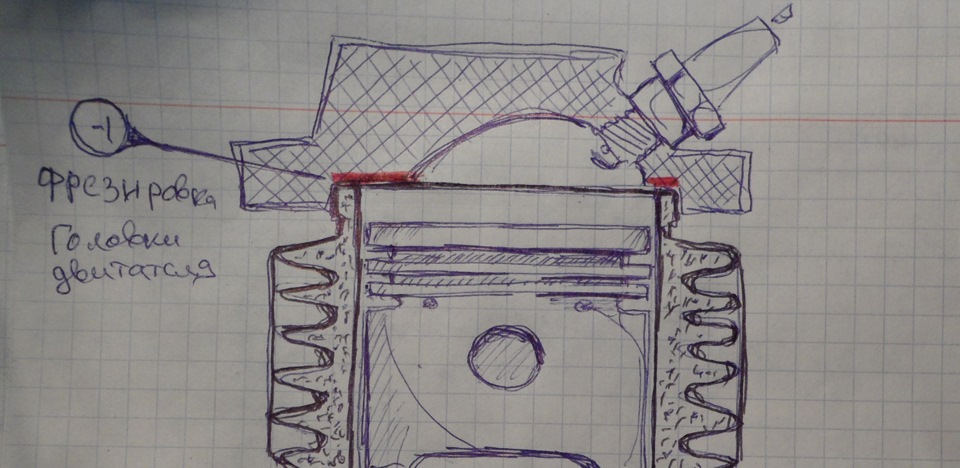 -1
Фрезировка
Головки
двигателя